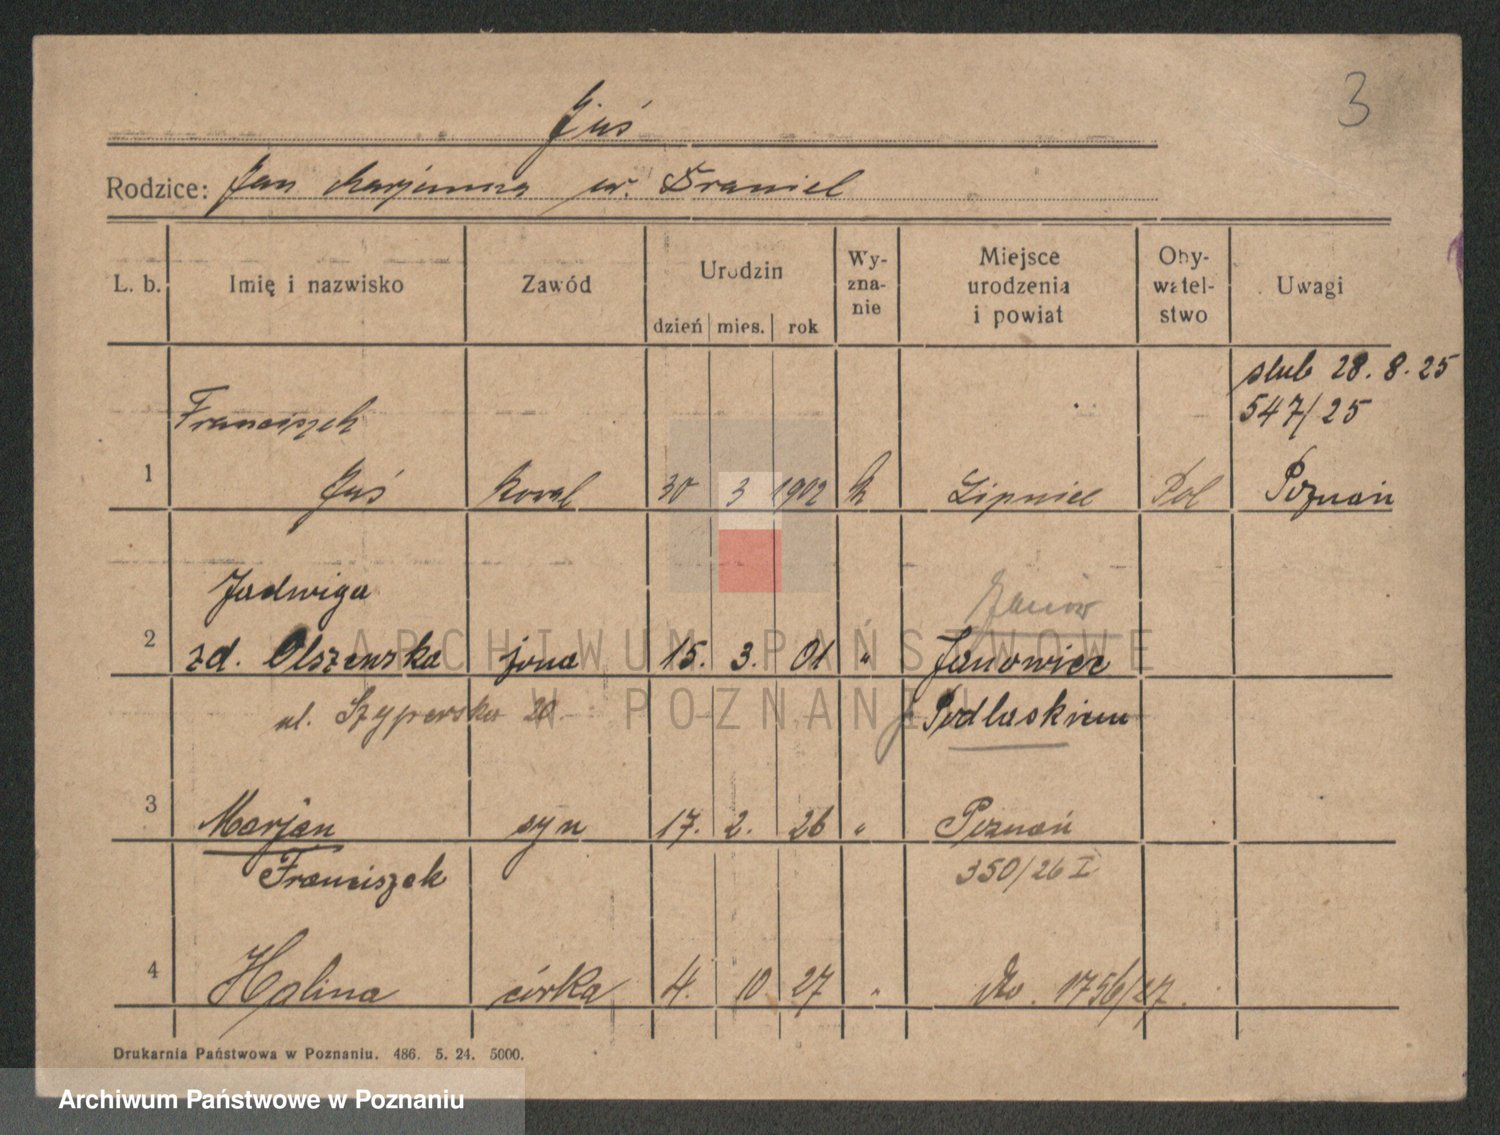 3
Juś
Rodzice: Jan Marjanna ur. Braniel
L. b. Imię i nazwisko Zawód Urodzin dzień mies. rok Wy-zna-nie Miejsce urodzenia i powiat Oby-watel-stwo Uwagi
ślub 28. 8. 25
547/25
Franciszek
1 Juś Koval 30 3 1902 k Lipniec Pol Poznań
Jadwiga Janów
2 zd. Olszewska żona 15. 3. 01 " Janowiec
ul. Szyperska 20 Podlaskiem
3 Marjan syn 17. 2. 26 " Poznań
Franciszek 350/26 I
4 Halina córka 4. 10 27 " dto. 1756/27.
Drukarnia Państwowa w Poznaniu. 486. 5. 24. 5000.
ARCHIWUM PAŃSTWOWE
W POZNANIU
Archiwum Państwowe w Poznaniu